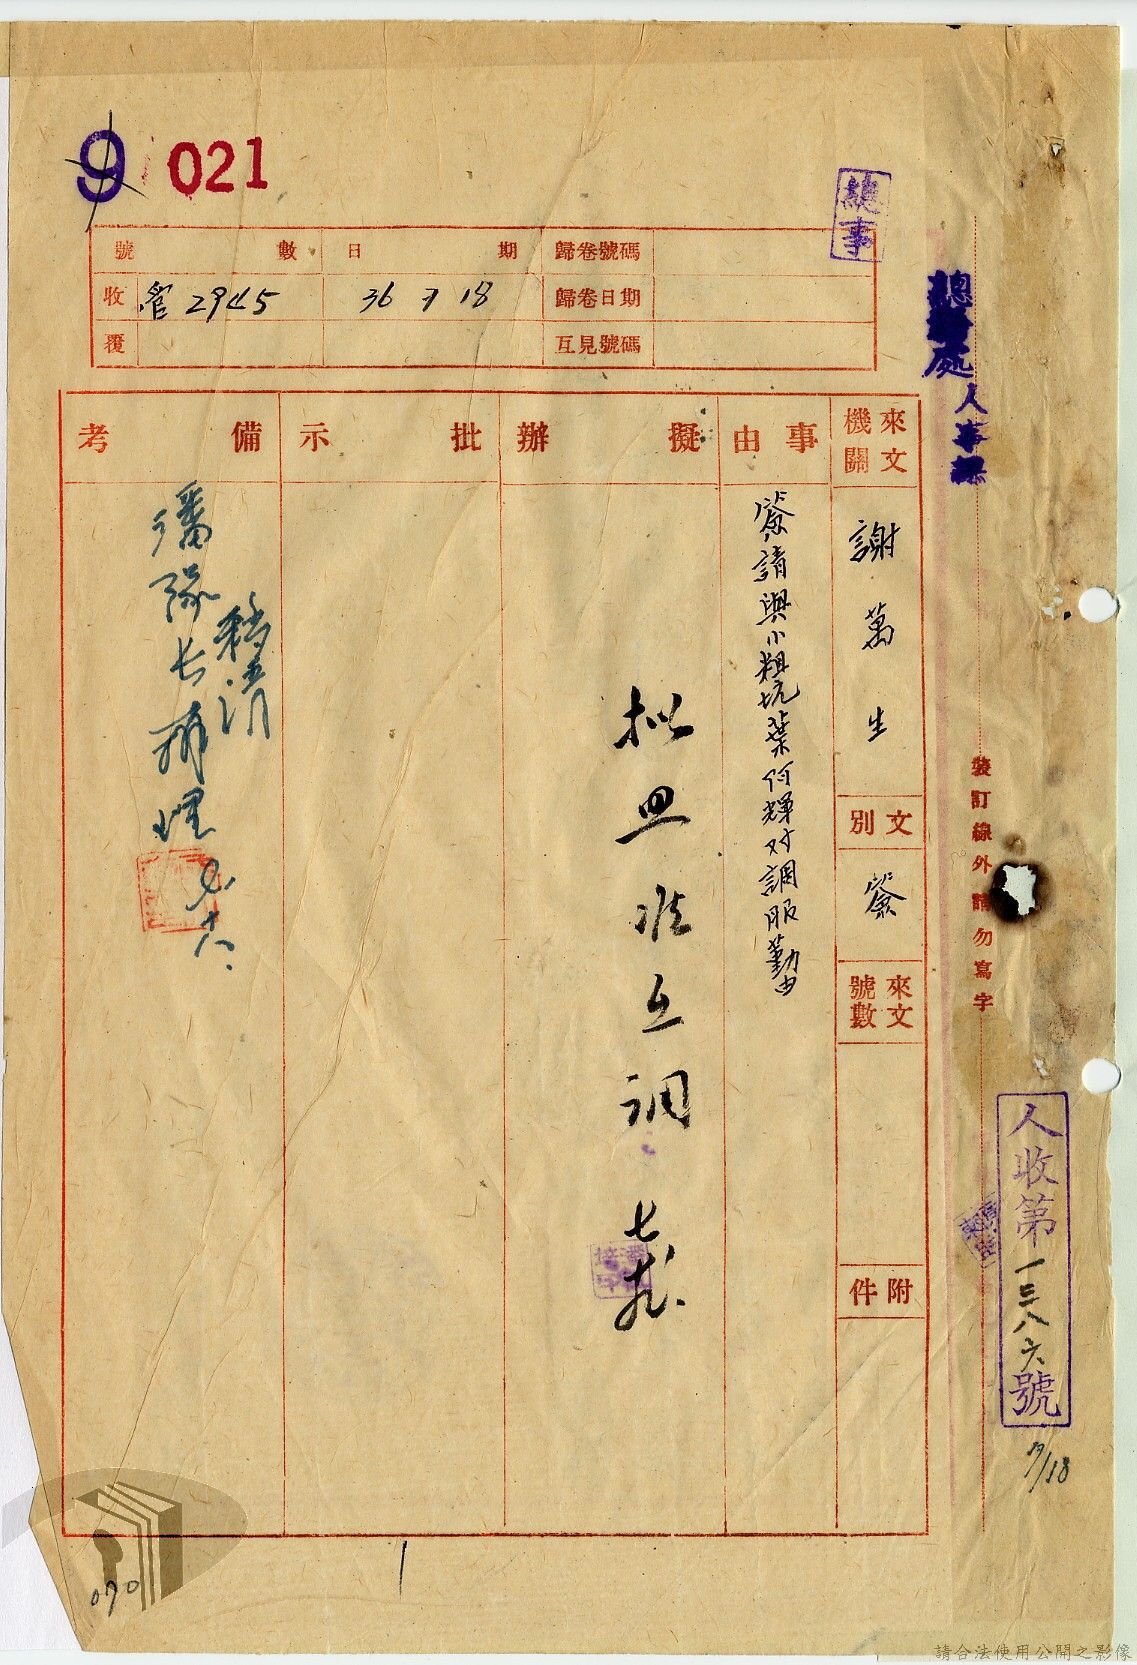 9 021
總事
號數 日期 歸卷號碼
收 管2945 36 7 18 歸卷日期
覆 互見號碼
總務處人事課
來文機關
謝萬生
文別
簽
來文號數
附件
事由
簽請與小粗坑葉何輝対調服勤由
擬辦
拟思准互調 七
批示
備考
潘隊长辦理
裝訂線外請勿寫字
人收第一三八六號
7/18
070
請合法使用公開之影像